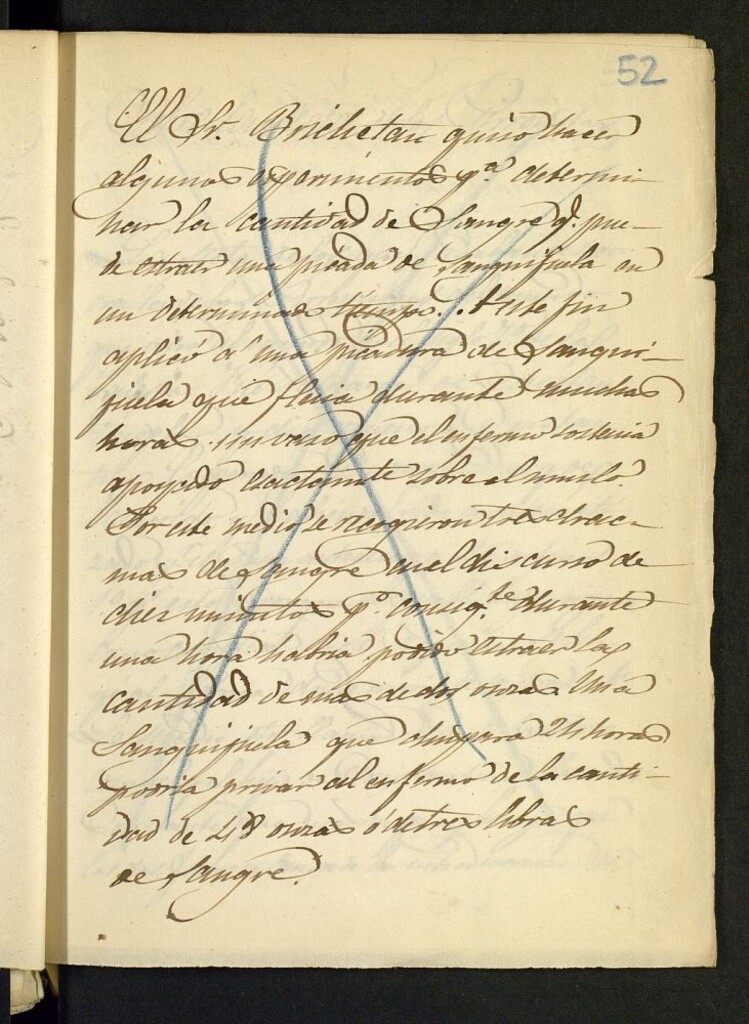 52
El Sr. Brichetau quiso hacer
algunos esperimentos pª determi-
nar la cantidad de Sangre q. pue-
de estraer una picada de Sanguijuela en
un determinado tiempo. A este fin
aplicó a una picadura de Sangui-
juela que fluia durante muchas
horas un vaso que el enfermo sostenia
apoyado exactamte sobre el muslo.
Por este medio se recogieron tres drac-
mas de Sangre en el discurso de
diez minutos pº. consigte durante
una hora habria podido estraer la
cantidad de mas de dos onzas. Una
Sanguijuela que chupara 24 horas
podria privar al enfermo de la canti-
dad de 48 onzas ó de tres libras
de Sangre.